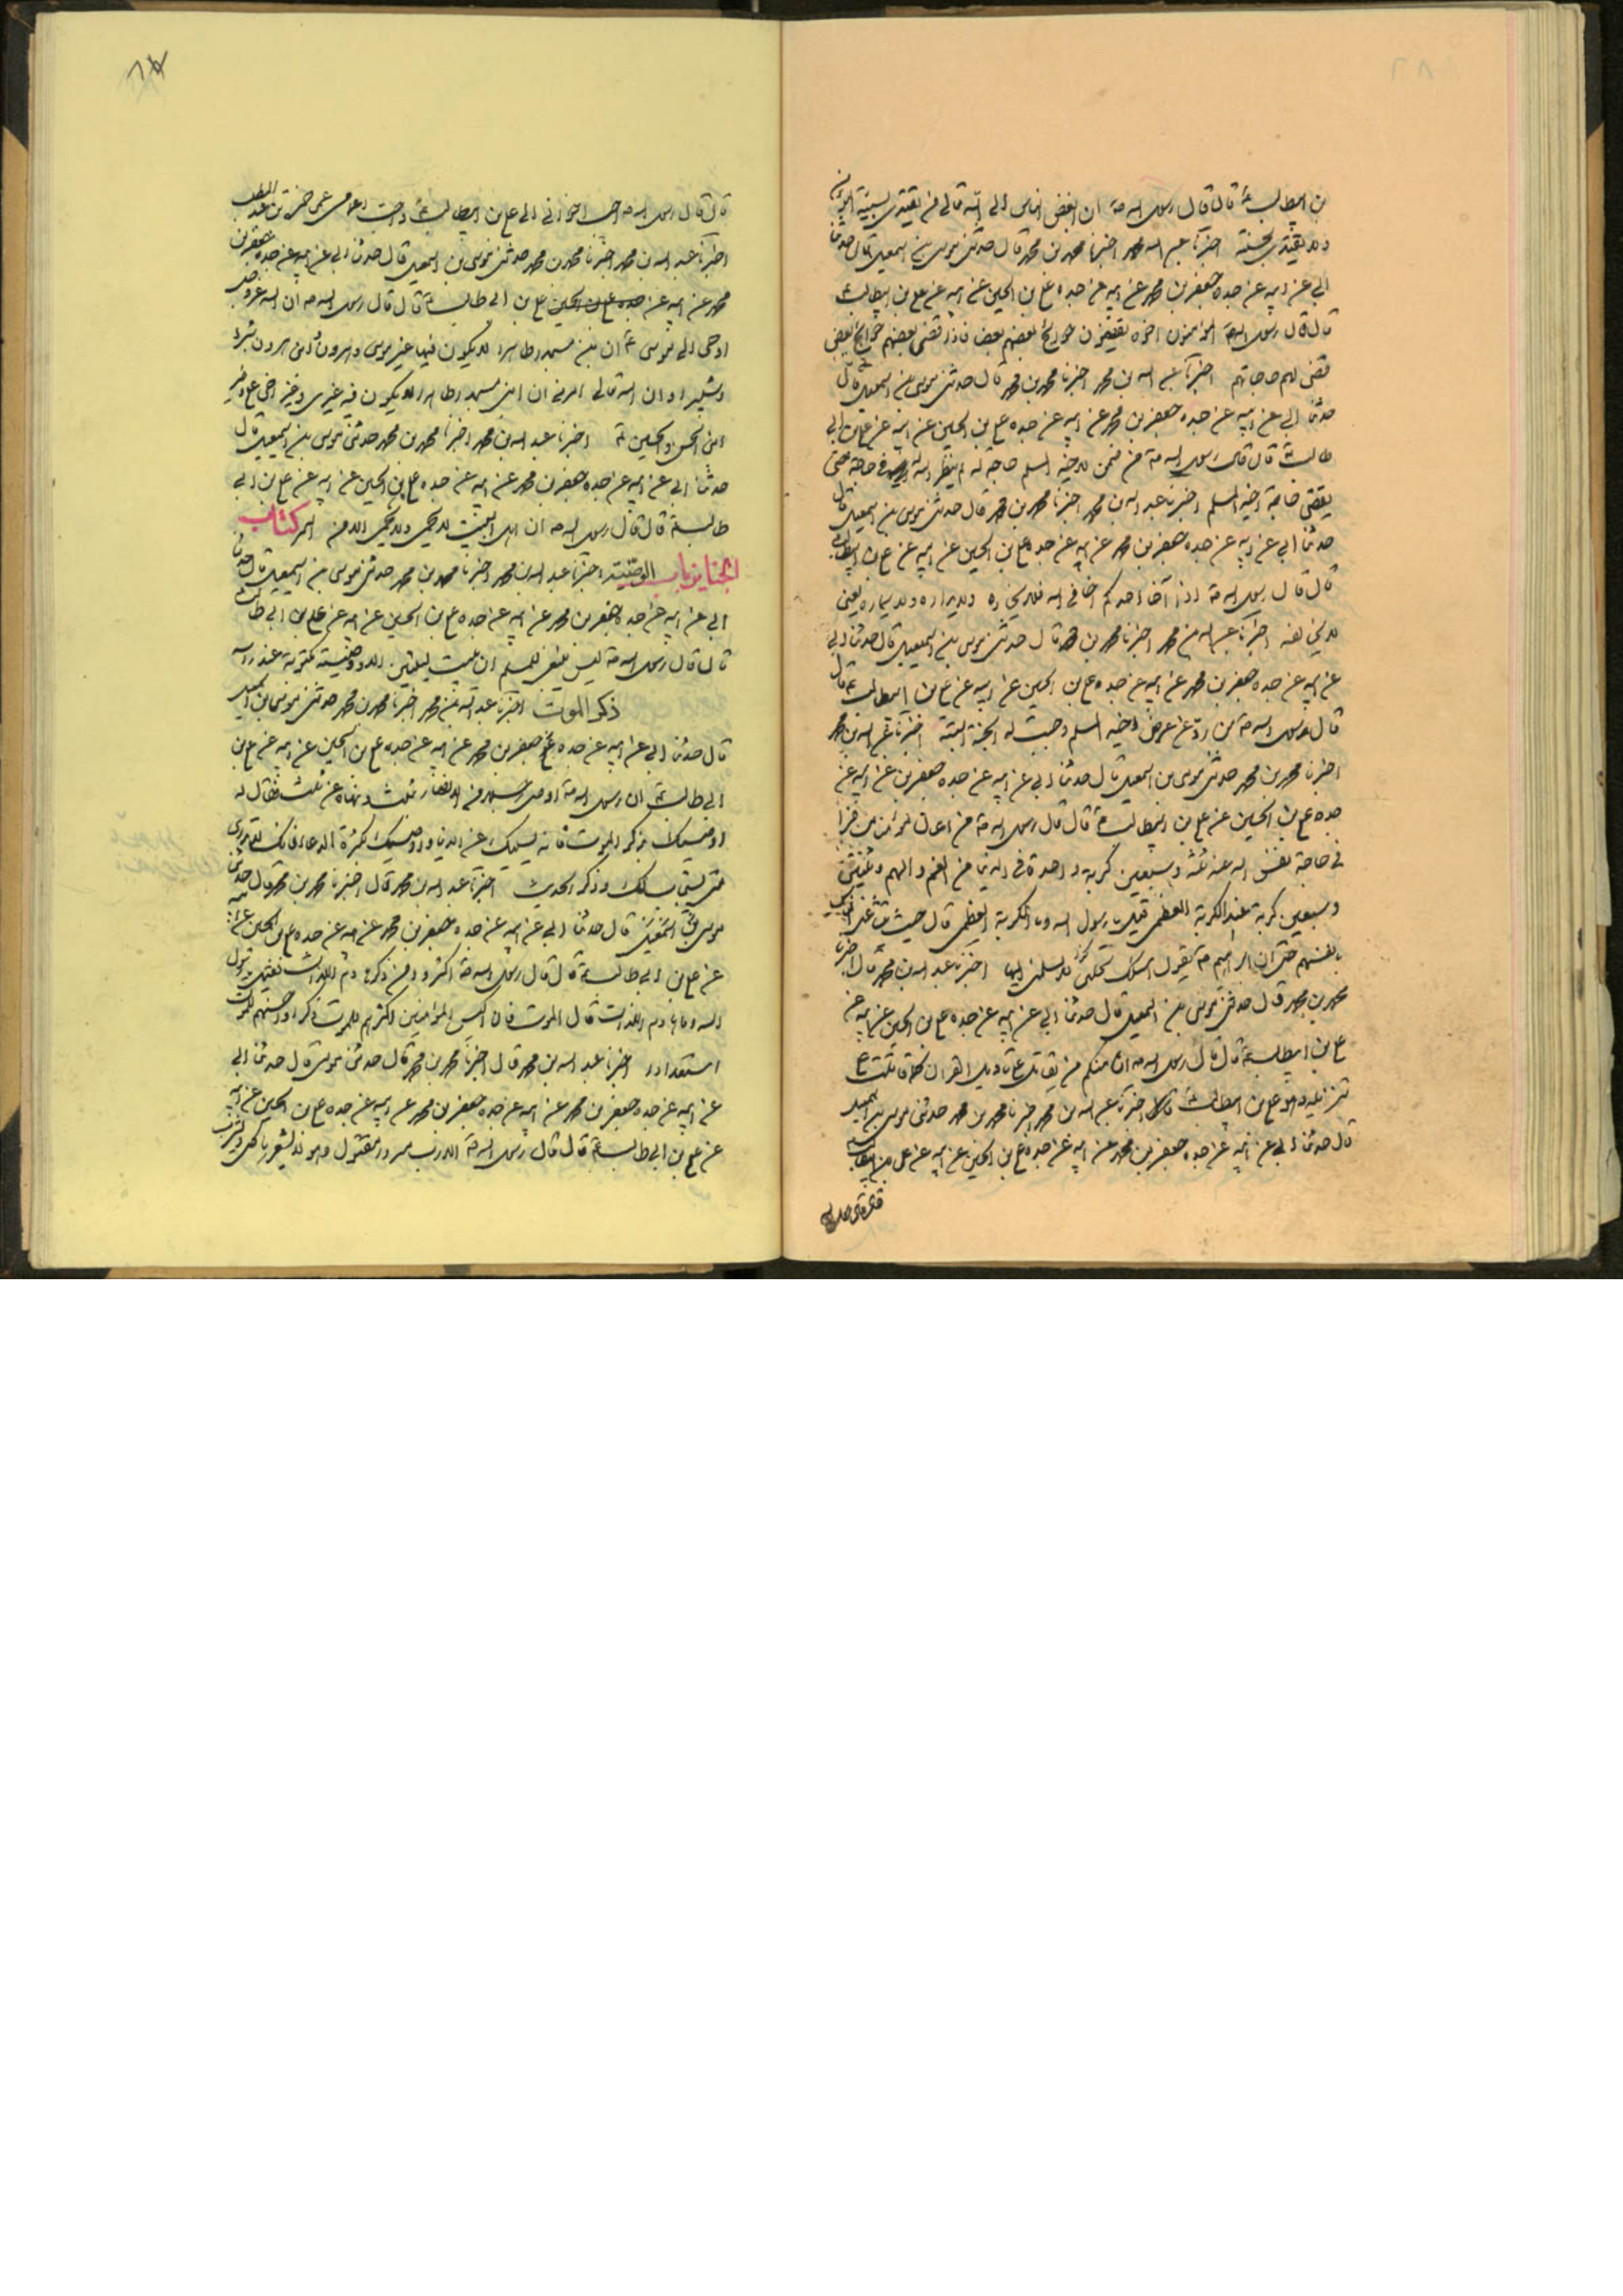 بن ابيطالب ع قال قال رسول الله ص ان ابغض الناس الى الله تعالى من يقتدي بسيئة المؤمن
ولا يقتدي بحسنته اخبرنا عبد الله بن محمد اخبرنا محمد بن محمد قال حدثني موسى بن اسمعيل قال حدثنا
ابي عن ابيه عن جده جعفر بن محمد عن ابيه عن جده علي بن الحسين عن ابيه عن علي بن ابيطالب ع
قال قال رسول الله ص المؤمنون اخوة يقضون حوائج بعضهم بعض فاذا قضى بعضهم حوائج بعض
قضى لهم حاجاتهم اخبرنا عبد الله بن محمد اخبرنا محمد بن محمد قال حدثني موسى بن اسمعيل قال
حدثنا ابي عن ابيه عن جده جعفر بن محمد عن ابيه عن جده علي بن الحسين عن ابيه عن علي بن ابي
طالب ع قال قال رسول الله ص من ضمن لاخيه المسلم حاجة له لم ينظر الله في حاجة حتى
يقضي حاجة اخيه المسلم اخبرنا عبد الله بن محمد اخبرنا محمد بن محمد قال حدثني موسى بن اسمعيل قال
حدثنا ابي عن ابيه عن جده جعفر بن محمد عن ابيه عن جده علي بن الحسين عن ابيه عن علي بن ابيطالب
قال قال رسول الله ص اذا آخا احدكم اخا في الله فلا يخاره ولا يداره ولا يماره يعني
لا يخالفه اخبرنا عبد الله بن محمد اخبرنا محمد بن محمد قال حدثني موسى بن اسمعيل قال حدثنا ابي
عن ابيه عن جده جعفر بن محمد عن ابيه عن جده علي بن الحسين عن ابيه عن علي بن ابيطالب ع قال
قال رسول الله ص من رد عن عرض اخيه المسلم وجبت له الجنة البتة اخبرنا عبد الله بن محمد
اخبرنا محمد بن محمد حدثني موسى بن اسمعيل قال حدثنا ابي عن ابيه عن جده جعفر بن عن ابيه عن
جده علي بن الحسين عن علي بن ابيطالب ع قال قال رسول الله ص من اعان مؤمنا
في حاجة نفس الله عنه ثلثة وسبعين كربة واحدة في الدنيا من الغم والهم وثنتين
وسبعين كربة عند الكربة العظمى قيل يا رسول الله وما الكربة العظمى قال حيث يتشاغل الناس
بانفسهم حتى ان ابراهيم ع يقول اسئلك بخلتي لا تسلمني اليها اخبرنا عبد الله بن محمد قال اخبرنا
محمد بن محمد قال حدثني موسى بن اسمعيل قال حدثنا ابي عن ابيه عن جده علي بن الحسين عن ابيه عن
علي بن ابيطالب ع قال قال رسول الله ص ان منكم من يقاتل على تاويل القران كما قاتلت على
تنزيله وهو علي بن ابيطالب ع اخبرنا عبد الله بن محمد اخبرنا محمد بن محمد حدثني موسى بن اسمعيل
قال حدثنا ابي عن ابيه عن جده جعفر بن محمد عن ابيه عن جده علي بن الحسين عن ابيه عن علي بن ابيطالب
قال قال رسول الله ص احب اخواني الى علي بن ابيطالب ع واحب اعمامي حمزة بن عبد المطلب
اخبرنا عبد الله بن محمد اخبرنا محمد بن محمد حدثني موسى بن اسمعيل قال حدثنا ابي عن ابيه عن جده جعفر بن
محمد عن ابيه عن جده علي بن الحسين علي بن ابي طالب ع قال قال رسول الله ص ان الله عز وجل
اوحى الى موسى ع ان ابن مسجدا طاهرا لا يكون فيها غير موسى وهرون وابني هرون شبرا
وشبيرا وان الله تعالى امرني ان ابني مسجدا طاهرا لا يكون فيه غيري وغير اخي علي وغير
ابني الحسن والحسين ع اخبرنا عبد الله بن محمد اخبرنا محمد بن محمد حدثني موسى بن اسمعيل قال
حدثنا ابي عن ابيه عن جده جعفر بن محمد عن ابيه عن جده علي بن الحسين عن ابيه عن علي بن ابي
طالب ع قال قال رسول الله ص ان اهل البيت كتاب
الجنايز باب الوصية اخبرنا عبد الله بن محمد اخبرنا محمد بن محمد حدثني موسى بن اسمعيل قال حدثنا
ابي عن ابيه عن جده جعفر بن محمد عن ابيه عن جده علي بن الحسين عن ابيه عن علي بن ابي طالب
قال قال رسول الله ص ليس ينبغي للمسلم ان يبيت ليلتين الا ووصيته مكتوبة عند راسه
ذكر الموت اخبرنا عبد الله بن محمد اخبرنا محمد بن محمد حدثني موسى بن اسمعيل
قال حدثنا ابي عن ابيه عن جده جعفر بن محمد عن ابيه عن جده علي بن الحسين عن ابيه عن علي بن
ابي طالب ع ان رسول الله ص اوصى رجلا من الانصار بثلث ونهاه عن ثلث فقال له
اوصيك بذكر الموت فانه يسليك عن الدنيا واوصيك بكثرة الدعاء فانك لا تدري
متى يستجاب لك وذكر الحديث اخبرنا عبد الله بن محمد قال اخبرنا محمد بن محمد قال حدثني
موسى بن اسمعيل قال حدثنا ابي عن ابيه عن جده جعفر بن محمد عن ابيه عن جده علي بن الحسين عن ابيه
عن علي بن ابي طالب ع قال قال رسول الله ص اكثروا من ذكر هادم اللذات فقيل يا رسول
الله وما هادم اللذات قال الموت فان اكيس المؤمنين اكثرهم للموت ذكرا واحسنهم للموت
استعدادا اخبرنا عبد الله بن محمد قال اخبرنا محمد بن محمد قال حدثني موسى قال حدثنا ابي
عن ابيه عن جده جعفر بن محمد عن ابيه عن جده جعفر بن محمد عن ابيه عن جده علي بن الحسين عن ابيه
عن علي بن ابي طالب ع قال قال رسول الله ص الا رب مسرور مقبول وهو لا يشعر ياكل ويشرب